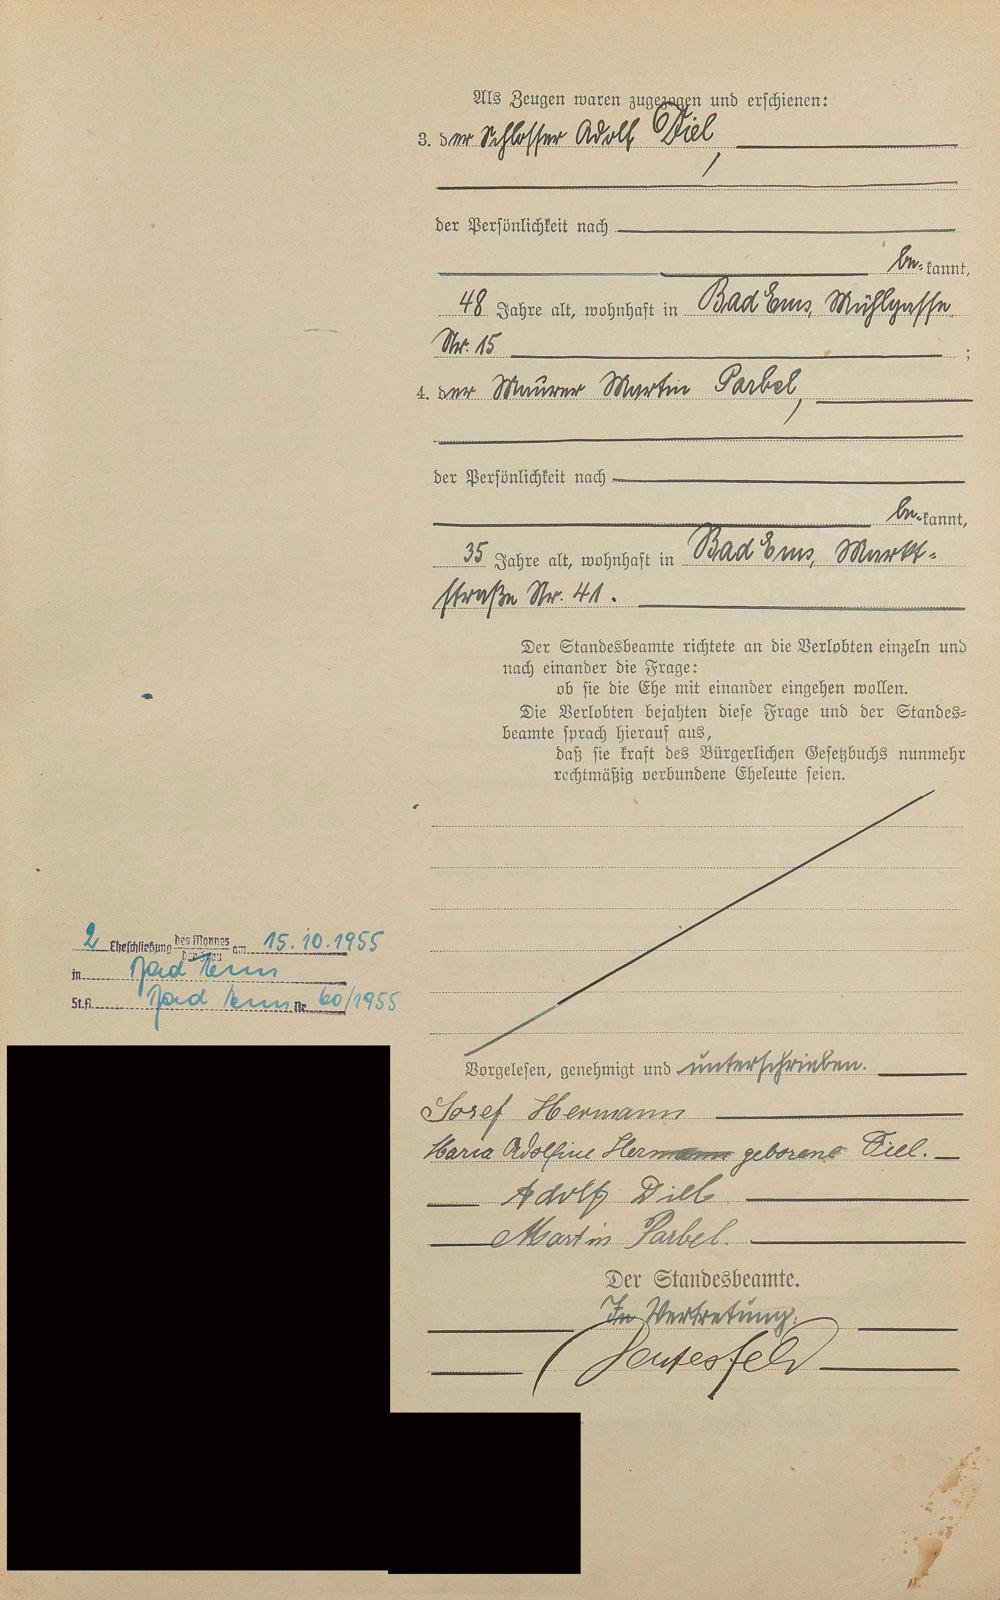 Als Zeugen waren zugezogen und erschienen:
3. der Schlosser Adolf Diel,
der Persönlichkeit nach
be-kannt,
48 Jahre alt, wohnhaft in Bad Ems, Mühlgasse
Nr. 15 ;
4. der Maurer Martin Parbel,
der Persönlichkeit nach
be-kannt,
35 Jahre alt, wohnhaft in Bad Ems, Markt-
straße Nr. 41.
Der Standesbeamte richtete an die Verlobten einzeln und
nach einander die Frage:
ob sie die Ehe mit einander eingehen wollen.
Die Verlobten bejahten diese Frage und der Standes-
beamte sprach hierauf aus,
daß sie kraft des Bürgerlichen Gesetzbuchs nunmehr
rechtmäßig verbundene Eheleute seien.
2 Eheschließung des Mannes der Frau am 15.10.1955
in Bad Ems
St.A. Bad Ems Nr. 60/1955
Vorgelesen, genehmigt und unterschrieben.
Josef Hermann
Maria Adolfine Hermann geborene Diel.
Adolf Diel
Martin Parbel.
Der Standesbeamte.
In Vertretung: